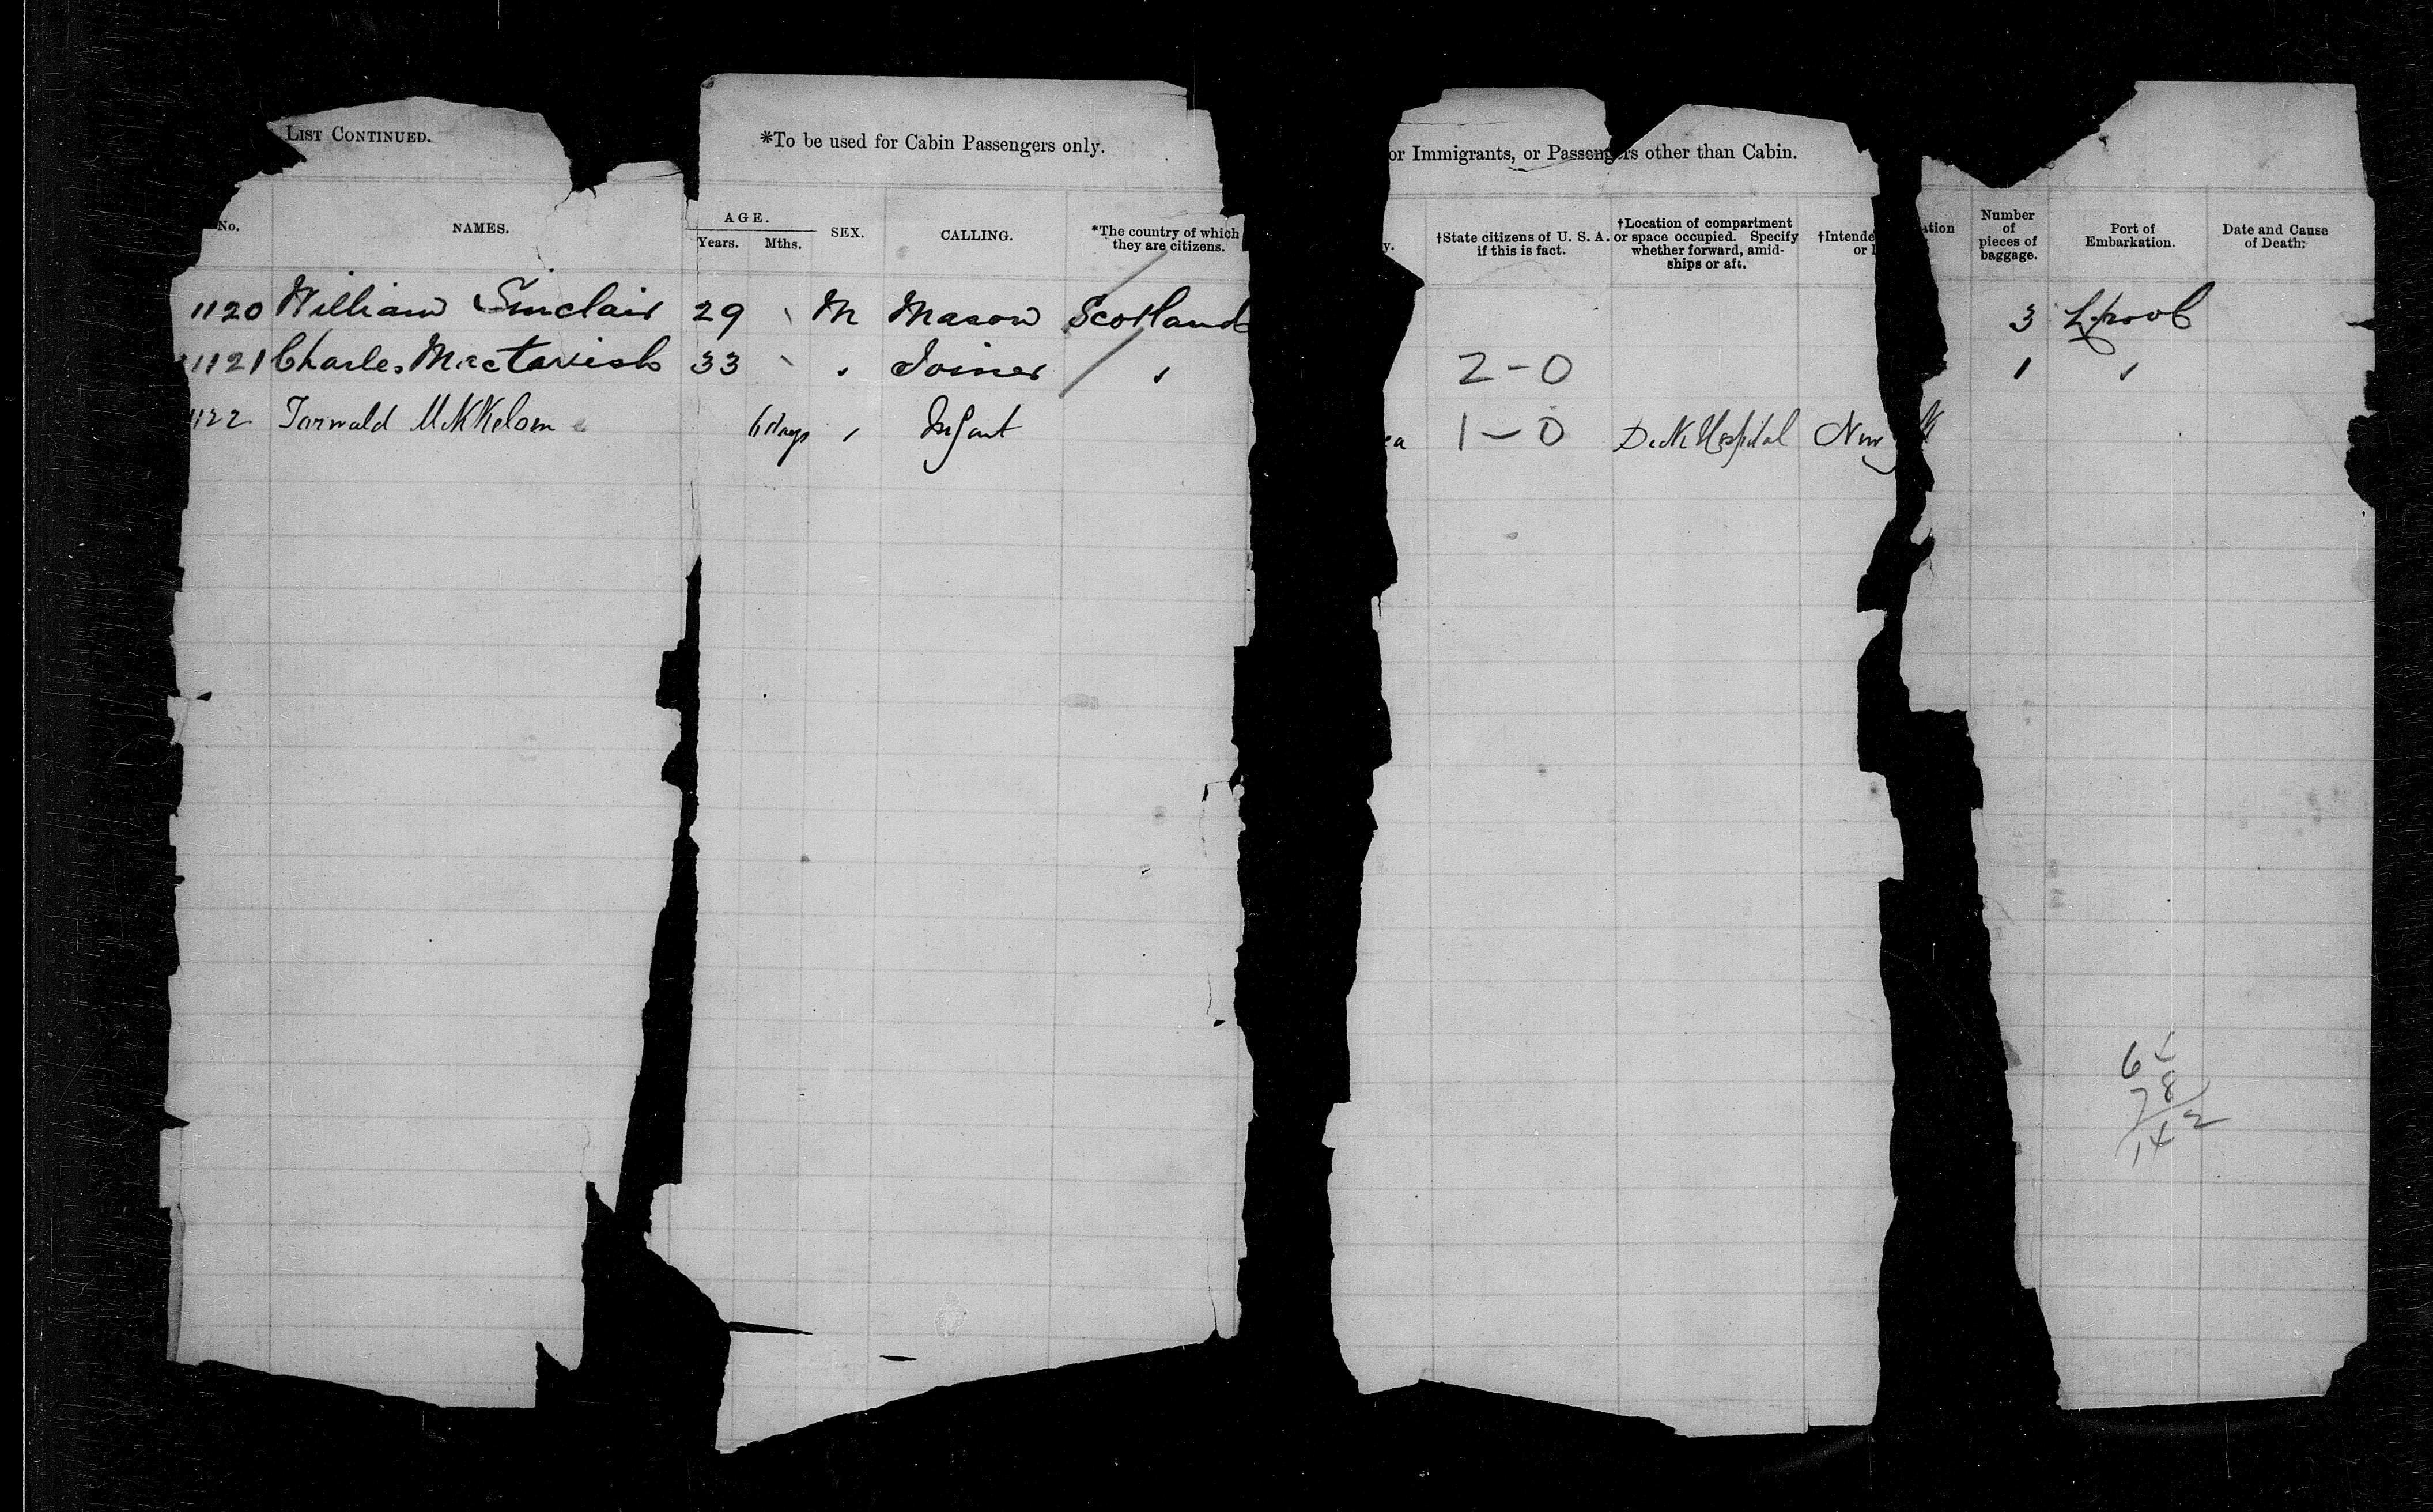 LIST CONTINUED.
*To be used for Cabin Passengers only.
or Immigrants, or Passengers other than Cabin.
No. NAMES. AGE. Years. Mths. SEX. CALLING. *The country of which they are citizens. y. †State citizens of U. S. A. if this is fact. †Location of compartment or space occupied. Specify whether forward, amidships or aft. †Intende or ation Number of pieces of baggage. Port of Embarkation. Date and Cause of Death:
1120 William Sinclair 29 M Mason Scotland 3 L.pool
1121 Charles Mactavish 33 " Joiner " 2-0 1 "
1122 Torwald Mikkelsen 6 days " Infant ea 1-0 Deck Hospital New k
6
8
7
2
14